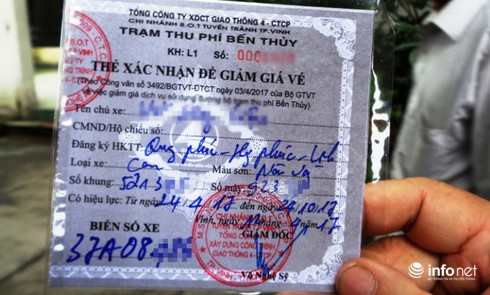 TỔNG CÔNG TY XDCT GIAO THÔNG 4 - CTCP
CHI NHÁNH B.O.T TUYẾN TRÁNH TP.VINH
TRẠM THU PHÍ BẾN THỦY
KH: L1 Số: 000
THẺ XÁC NHẬN ĐỂ GIẢM GIÁ VÉ
(Theo Công văn số 3492/BGTVT-ĐTCT ngày 03/4/2017 của Bộ GTVT
về việc giảm giá dịch vụ sử dụng đường bộ trạm thu phí Bến Thủy)
Tên chủ xe:
CMND/Hộ chiếu số:
Đăng ký HKTT:
Loại xe: Con Màu sơn:
Số khung: 5213 Số máy: 923
Có hiệu lực: Từ ngày 24.4.17 đến ngày 24.10.17
Vinh, ngày tháng 4 năm 17
BIỂN SỐ XE GIÁM ĐỐC
37A08
Võ Nghệ Sỹ
infonet